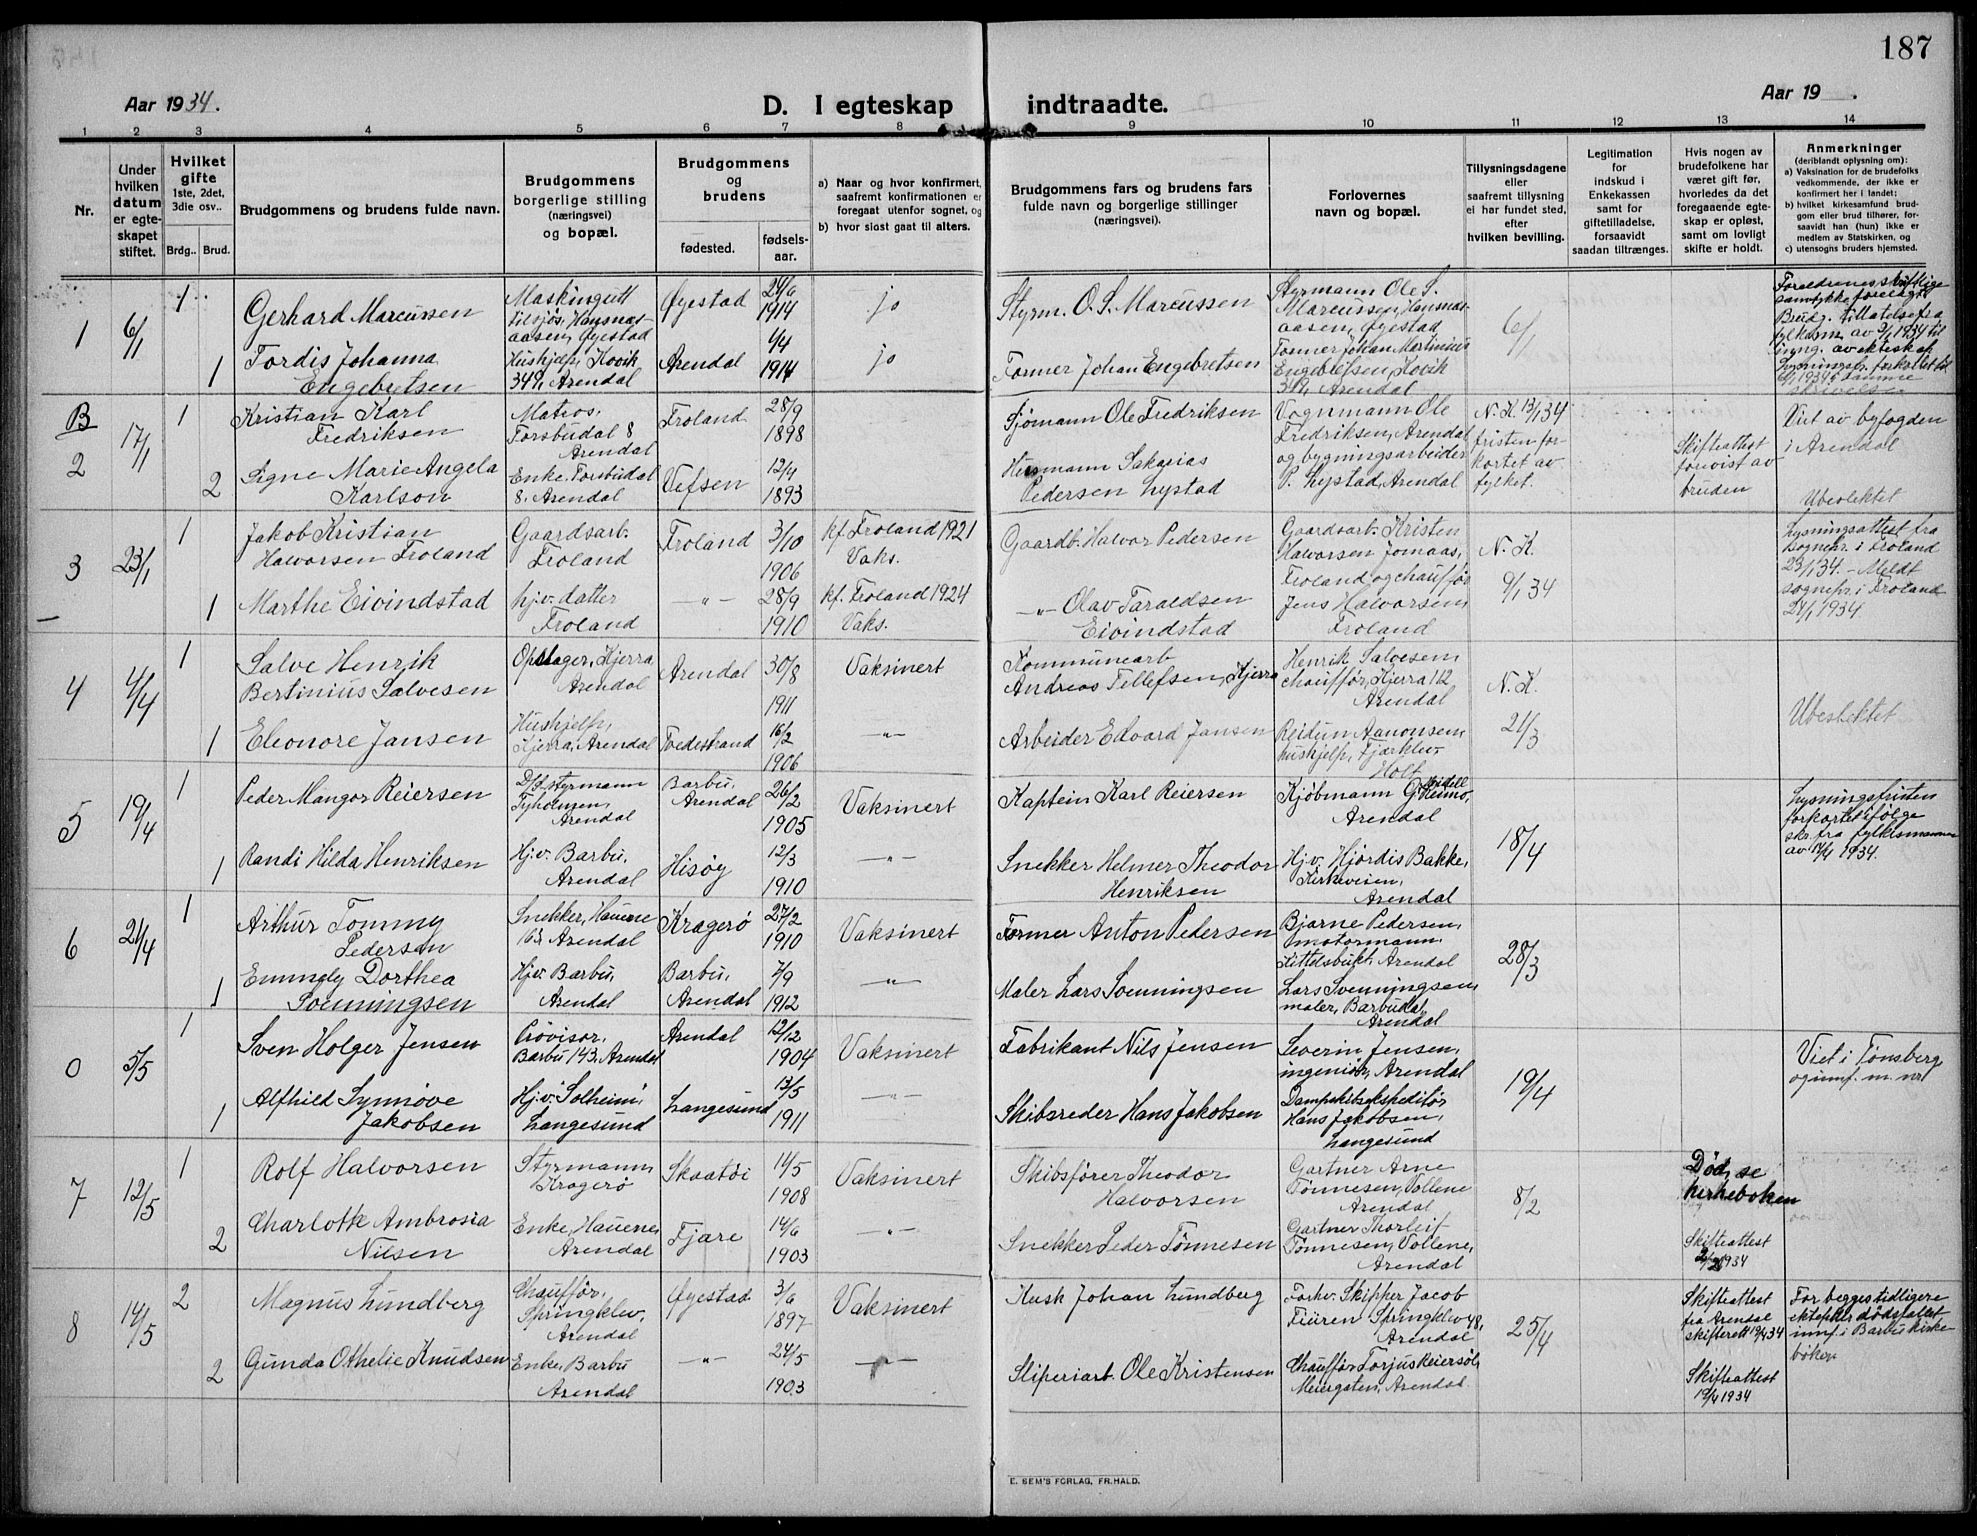 187
Aar 1934.
D. I egteskap indtraadte.
Aar 19 .
1 2 3 4 5 6 7 8 9 10 11 12 13 14
Nr.
Under
hvilken
datum
er egte-
skapet
stiftet.
Hvilket
gifte
1ste, 2det,
3die osv..
Brdg.. Brud.
Brudgommens og brudens fulde navn.
Brudgommens
borgerlige stilling
(næringsvei)
og bopæl.
Brudgommens
og
brudens
fødested.
fødsels-
aar.
a) Naar og hvor konfirmert,
saafremt konfirmationen er
foregaat utenfor sognet, og
b) hvor sidst gaat til alters.
Brudgommens fars og brudens fars
fulde navn og borgerlige stillinger
(næringsvei).
Forlovernes
navn og bopæl.
Tillysningsdagene
eller
saafremt tillysning
ei har fundet sted,
efter
hvilken bevilling.
Legitimation
for
indskud i
Enkekassen
samt for
giftetilladelse,
forsaavidt
saadan tiltrænges.
Hvis nogen av
brudefolkene har
været gift før,
hvorledes da det
foregaaende egte-
skap er opløst,
samt om lovligt
skifte er holdt.
Anmerkninger
(deriblandt oplysning om):
a) Vaksination for de brudefolks
vedkommende, der ikke er
konfirmert her i landet;
b) hvilket kirkesamfund brud-
gom eller brud tilhører, for-
saavidt han (hun) ikke er
medlem av Statskirken, og
c) utensogns bruders hjemsted.
1
6/1
1
Gerhard Marcussen
Maskingutt
tilsjøs, Hansnes-
aasen, Øyestad
Øyestad
24/6
1914
jo
Styrm. O. S. Marcussen
Styrmann Ole S.
Marcussen, Hansnes-
aasen, Øyestad
6/1
Foreldrenes skriftlige
samtykke forelagt
Brudg. tillatelse fra
fylkesm. av 3/1 1934 til
inng. av ekteskap
1
Tordis Johanna
Engebretsen
Hushjelp, Kovik
349, Arendal
Arendal
4/4
1914
jo
Former Johan Engebretsen
Former Johan Martinius
Engebretsen, Kovik
349, Arendal
B
2
17/1
1
Kristian Karl
Fredriksen
Matros,
Torsbudal 8
Arendal
Froland
28/9
1898
Sjømann Ole Fredriksen
Vognmann Ole
Fredriksen, Arendal
og bygningsarbeider
P. Lystad, Arendal
N. K. 13/1 34
fristen for-
kortet av
fylket.
Skifteattest
forvist av
bruden
Viet av byfogden
i Arendal
Ubeslektet
2
Signe Marie Angela
Karlson
Enke, Torsbudal
8, Arendal
Vefsen
12/4
1893
Husmann Sakarias
Pedersen Lystad
3
23/1
1
Jakob Kristian
Halvorsen Froland
Gaardsarb.
Froland
Froland
3/10
1906
kf. Froland 1921
Vaks.
Gaardb. Halvor Pedersen
Gaardsarb. Kristen
Halvorsen Jomaas,
Froland og chauffør
Jens Halvorsen,
Froland
N. K.
9/1 34
Lysningsattest fra
sognepr. i Froland
23/1 34. - Meldt
sognepr. i Froland
24/1 1934.
1
Marthe Eivindstad
hj.v. datter
Froland
-"-
28/9
1910
kf. Froland 1924
Vaks.
-"- Olav Taraldsen
Eivindstad
4
4/4
1
Salve Henrik
Bertinius Salvesen
Opslager, Kjerra,
Arendal
Arendal
30/8
1911
Vaksinert
Kommunearb
Andreas Tellefsen, Kjerra
Henrik Salvesen,
chauffør, Kjerra 112
Arendal
N. K.
21/3
Ubeslektet
1
Eleonore Jansen
Hushjelp,
Kjerra, Arendal
Tvedestrand
16/2
1906
-"-
Arbeider Edvard Jansen
Reidun Aanonsen,
hushjelp, Fjærklev
Holt
5
19/4
1
Peder Mangor Reiersen
D/S styrmann
Tyholmen,
Arendal
Barbu,
Arendal
26/2
1905
Vaksinert
Kaptein Karl Reiersen
Kjøbmann G.
Arendal
18/4
Lysningsfristen
forkortet ifølge
skr. fra fylkesmannen
av 17/4 1934.
1
Randi Hilda Henriksen
Hj.v. Barbu,
Arendal
Hisøy
12/3
1910
-"-
Snekker Helmer Theodor
Henriksen
Hj.v. Hjørdis Bakke,
Kirkeveien,
Arendal
6
21/4
1
Arthur Tommy
Pedersen
Snekker, Havene
Arendal
Kragerø
27/2
1910
Vaksinert
Former Anton Pedersen
Bjarne Pedersen,
motormann,
Kittelsbukt, Arendal
28/3
1
Emmely Dorthea
Svenningsen
Hj.v. Barbu,
Arendal
Barbu,
Arendal
7/9
1912
-"-
Maler Lars Svenningsen
Lars Svenningsen,
maler, Barbudal,
Arendal
0
5/5
1
Sven Holger Jensen
Provisor,
Barbu 143, Arendal
Arendal
12/12
1904
Vaksinert
Fabrikant Nils Jensen
Severin Jensen,
ingeniør, Arendal
19/4
Viet i Tønsberg
og innf. m. nr.
1
Alfhild Synnøve
Jakobsen
Hj.v. Solheim,
Langesund
Langesund
13/5
1911
-"-
Skibsreder Hans Jakobsen
Dampskibsekspeditør
Hans Jakobsen,
Langesund
7
12/5
1
Rolf Halvorsen
Styrmann
Kragerø
Skaatøi
14/5
1908
Vaksinert
Skibsfører Theodor
Halvorsen
Gartner Arne
Tønnesen, Vollene
Arendal
8/2
Død, se
kirkeboken
2
Charlotte Ambrosia
Nilsen
Enke, Havene,
Arendal
Fjære
14/6
1903
-"-
Snekker Peder Tønnesen
Gartner Thorleif
Tønnesen, Vollene,
Arendal
Skifteattest
1934
8
14/5
2
Magnus Lundberg
Chauffør,
Springklev,
Arendal
Øyestad
3/6
1897
Vaksinert
Kusk Johan Lundberg
Forhv. Skipper Jacob
Fiüren Springklev 48,
Arendal
25/4
Skifteattest
fra Arendal
skifterett 19/4 34
For begges tidligere
ektefeller dødsfallet
innf. i Barbu kirke
bøker
2
Gunda Othelie Knudsen
Enke, Barbu
Arendal
-"-
24/5
1903
-"-
Sliperiarb. Ole Kristensen
Chauffør Torjus Reiersøl,
Meiergaten, Arendal
Skifteattest
19/4 1934
E. SEM'S FORLAG, FR.HALD.